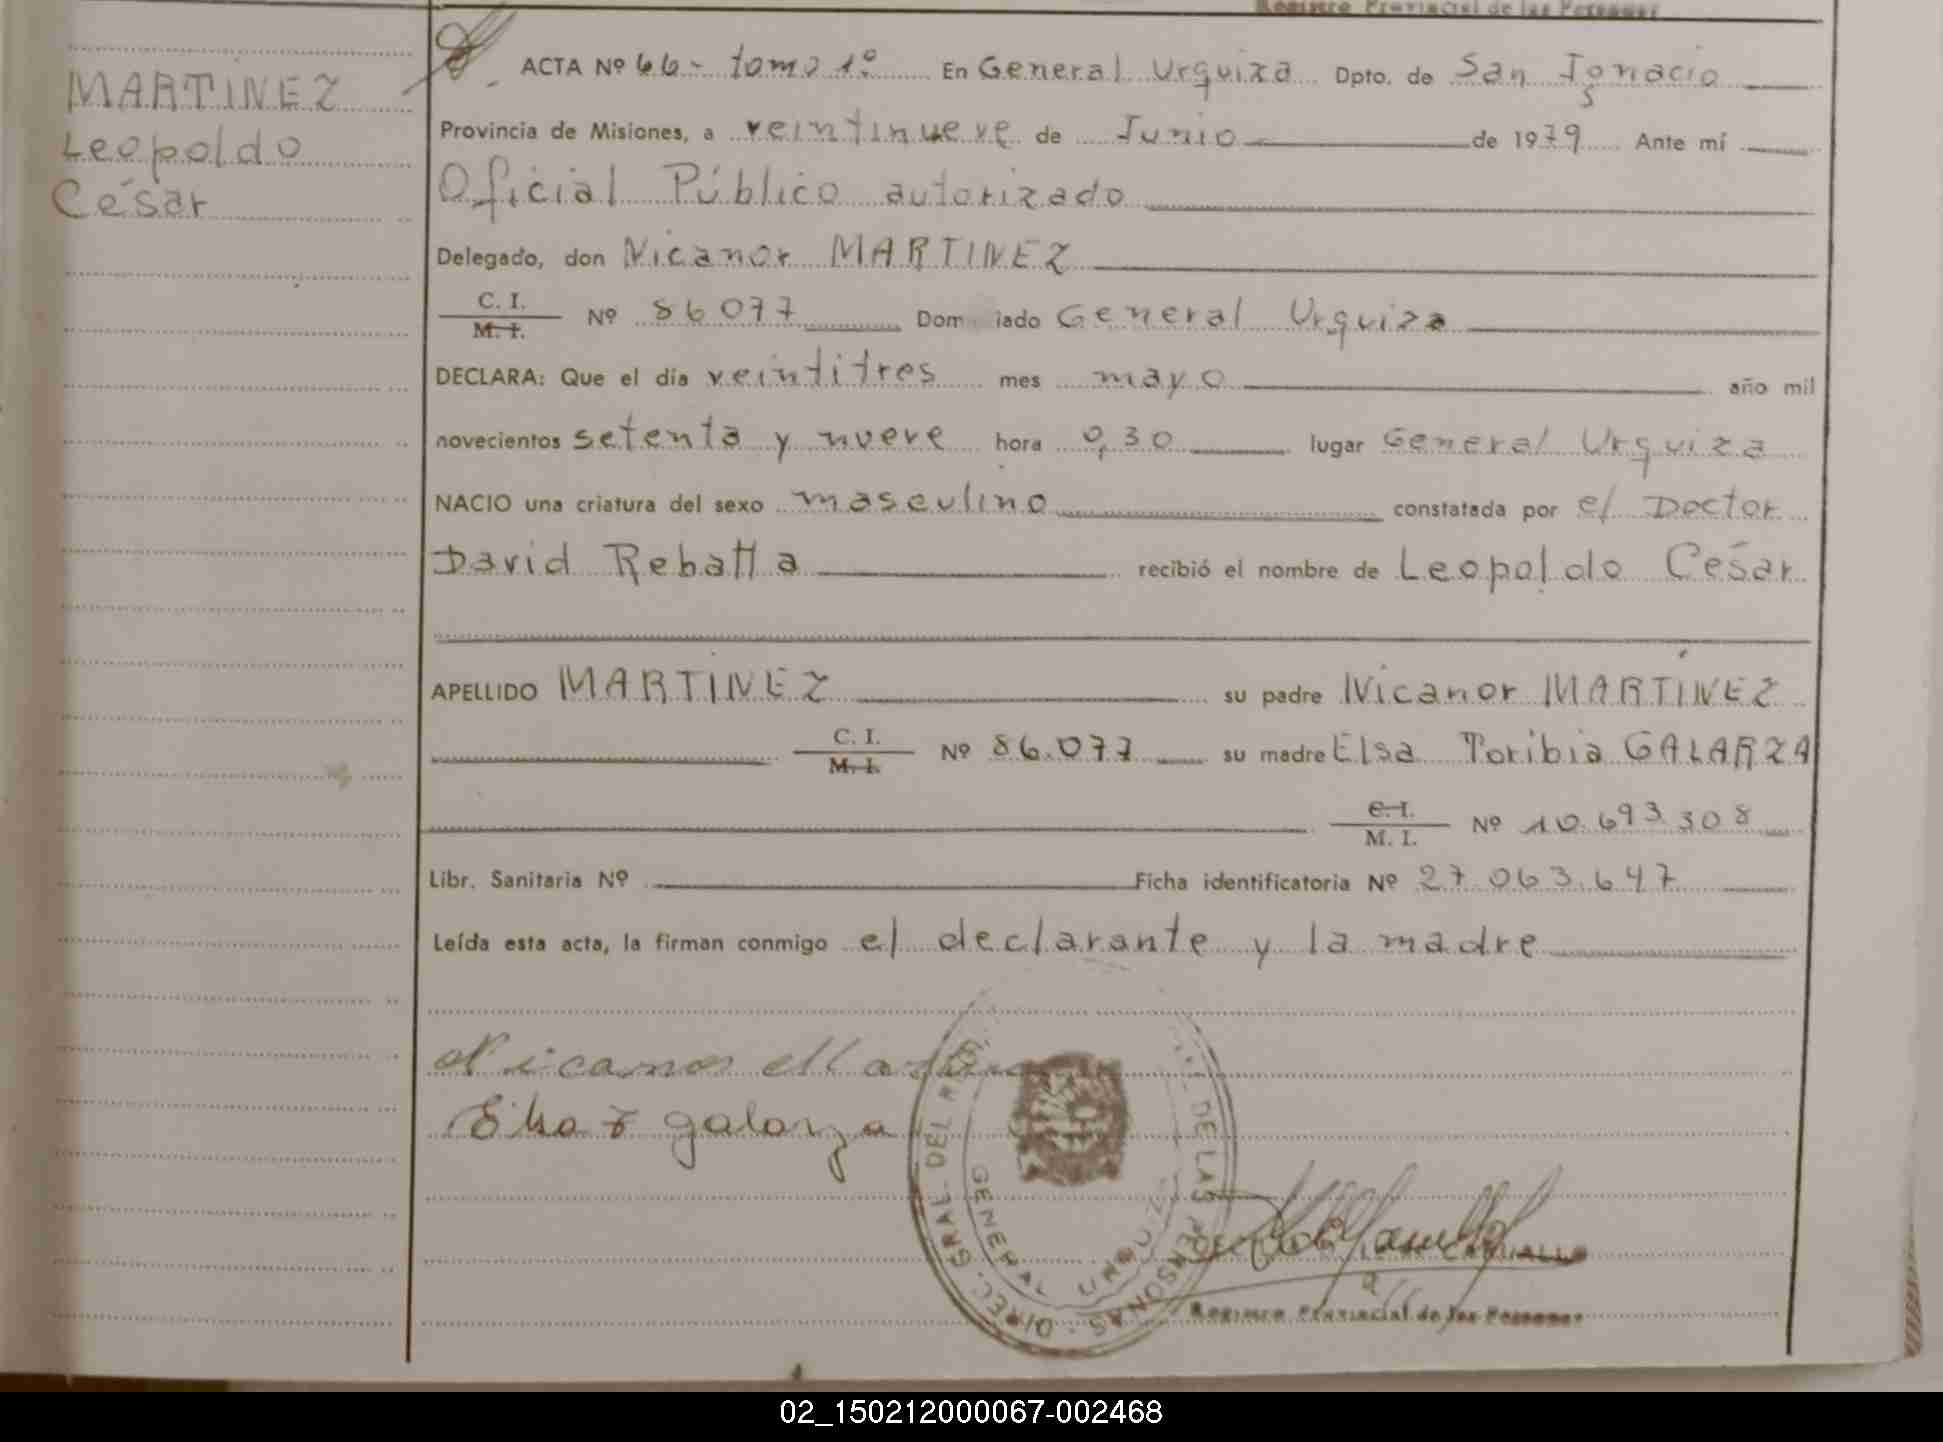 Registro Provincial de las Personas
MARTINEZ
Leopoldo
César
ACTA Nº 66 - tomo 1º En General Urquiza Dpto. de San Ignacio
Provincia de Misiones, a veintinueve de Junio de 1979 Ante mí
Oficial Público autorizado
Delegado, don Nicanor MARTINEZ
C. I.
M. I. Nº 86077 Dom iado General Urquiza
DECLARA: Que el día veintitres mes mayo año mil
novecientos setenta y nueve hora 0,30 lugar General Urquiza
NACIO una criatura del sexo masculino constatada por el Doctor
David Rebatta recibió el nombre de Leopoldo César
APELLIDO MARTINEZ su padre Nicanor MARTÍNEZ
C. I.
M. I. Nº 86.077 su madre Elsa Toribia GALARZA
C. I.
M. I. Nº 10.693.308
Libr. Sanitaria Nº Ficha identificatoria Nº 27.063.647
Leída esta acta, la firman conmigo el declarante y la madre
Nicanor Martinez
Elsa T galarza
DIREC. GRAL. DEL DE LAS PERSONAS
GENERAL
Registro Provincial de las Personas
02_150212000067-002468